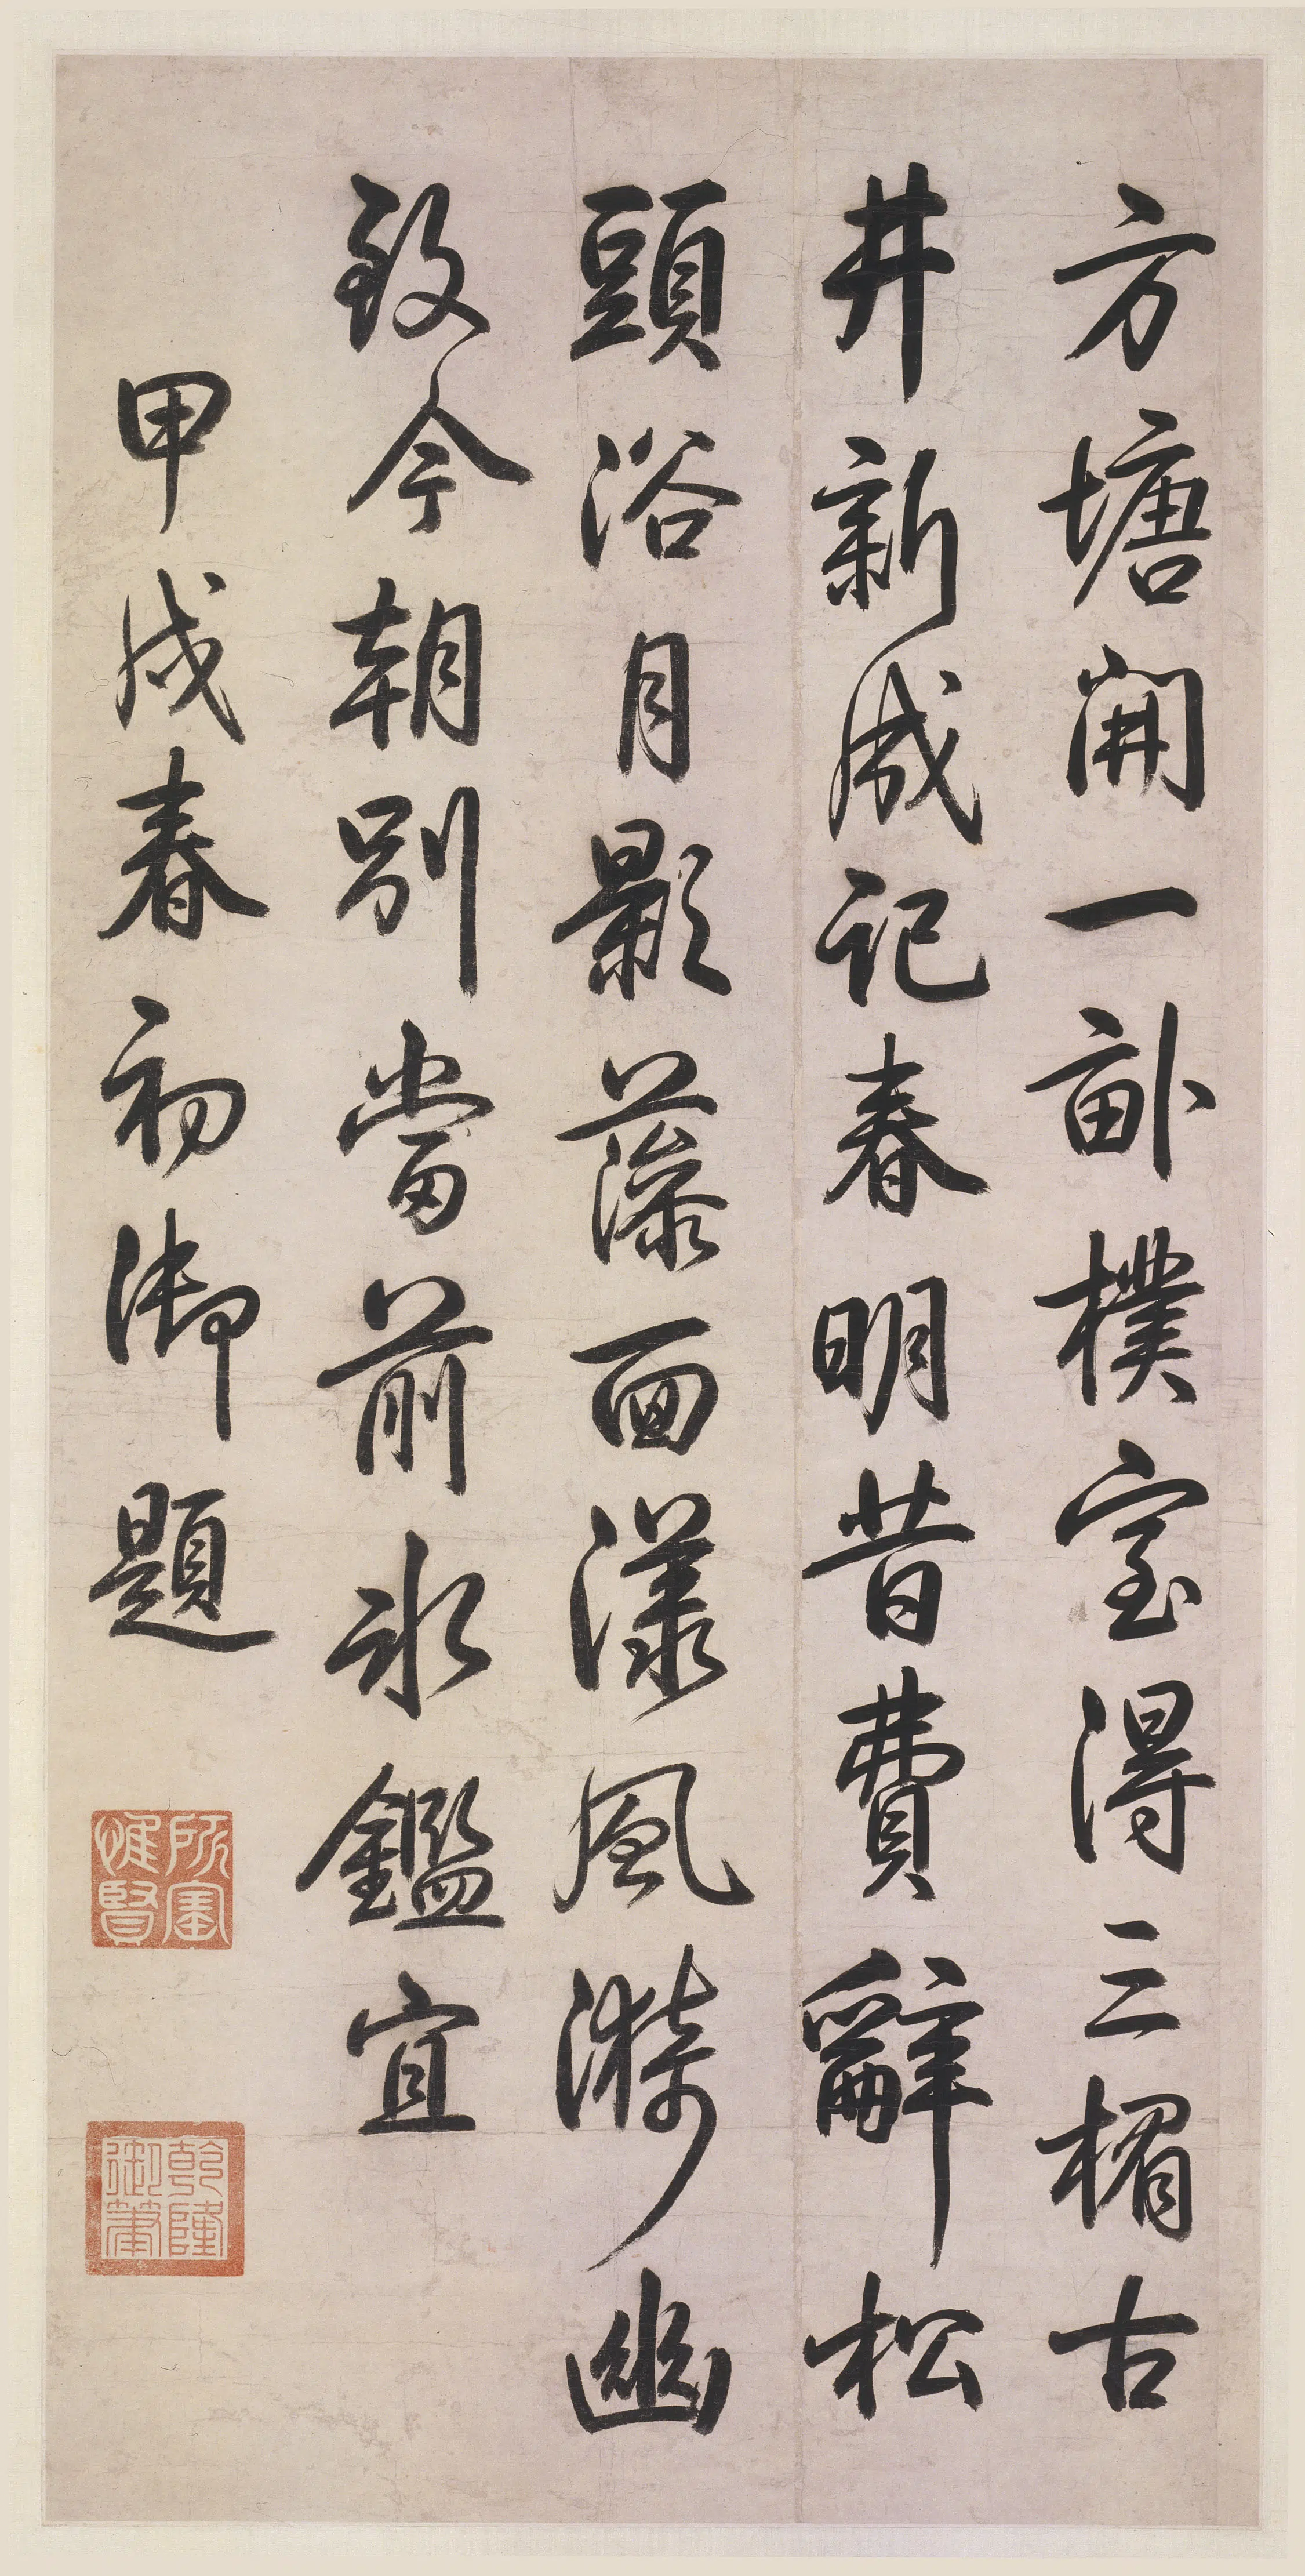 方塘開一畝樸室得三楣古
井新成記春明昔費辭松
頭浴月影藻面漾風漪幽
致今朝別當前冰鑑宜
甲戌春初御題
所寶惟賢
乾隆御筆